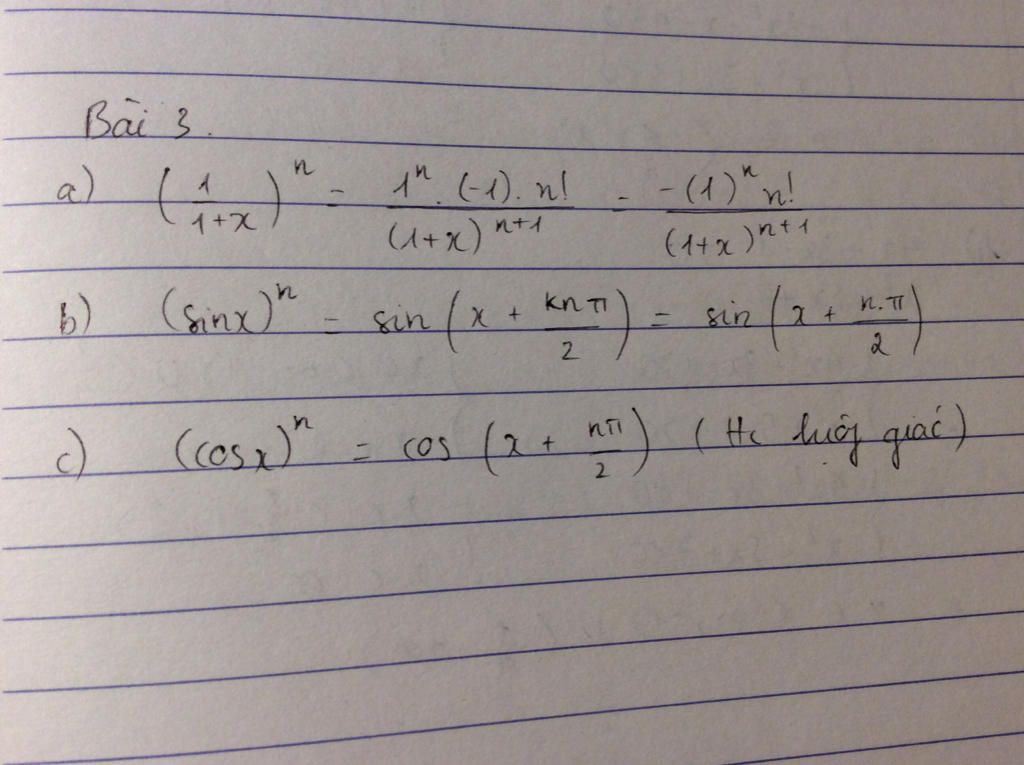 Bài 3.
a) (1/(1+x))^n = (1^n . (-1) . n!)/((1+x)^(n+1)) = (-(1)^n n!)/((1+x)^(n+1))
b) (sinx)^n = sin(x + knπ/2) = sin(x + n.π/2)
c) (cosx)^n = cos(x + nπ/2) (Hc lượg giác)